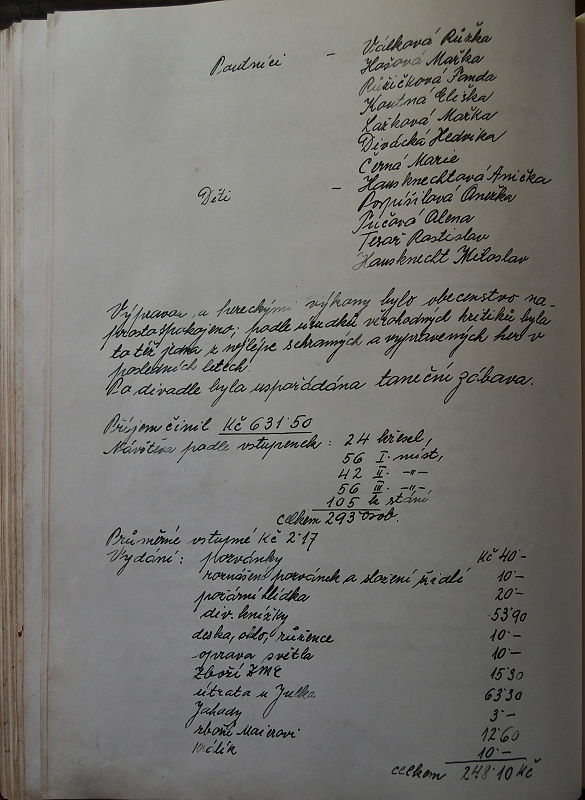 Poutníci - Válková Růžka
Hašová Mařka
Růžičková Panda
Koutná Eliška
Lažková Mařka
Divácká Hedvika
Černá Marie
Děti - Hausknechtová Anička
Pospíšilová Anežka
Pučová Alena
Tesař Rastislav
Hausknecht Miloslav
Výpravou a hereckými výkony bylo obecenstvo na-
prosto spokojeno, podle úsudků věrohodných kritiků byla
to též jedna z nejlépe sehraných a vypravených her v
posledních letech.
Po divadle byla uspořádána taneční zábava.
Příjem činil Kč 631·50
Návštěva podle vstupenek: 24 křesel,
56 I. míst,
42 II. -"-
56 III. -"-
105 k stání
celkem 293 osob.
Průměrné vstupné Kč 2·17
Vydání: pozvánky Kč 40·-
roznášení pozvánek a složení židlí 10·-
požární hlídka 20·-
div. knížky 53·90
deska, sklo, růžence 10·-
oprava světla 10·-
zboží 15·30
útrata u Julka 63·30
Jahody 3·-
zboží Maierovi 12·60
10·-
celkem 248·10 Kč